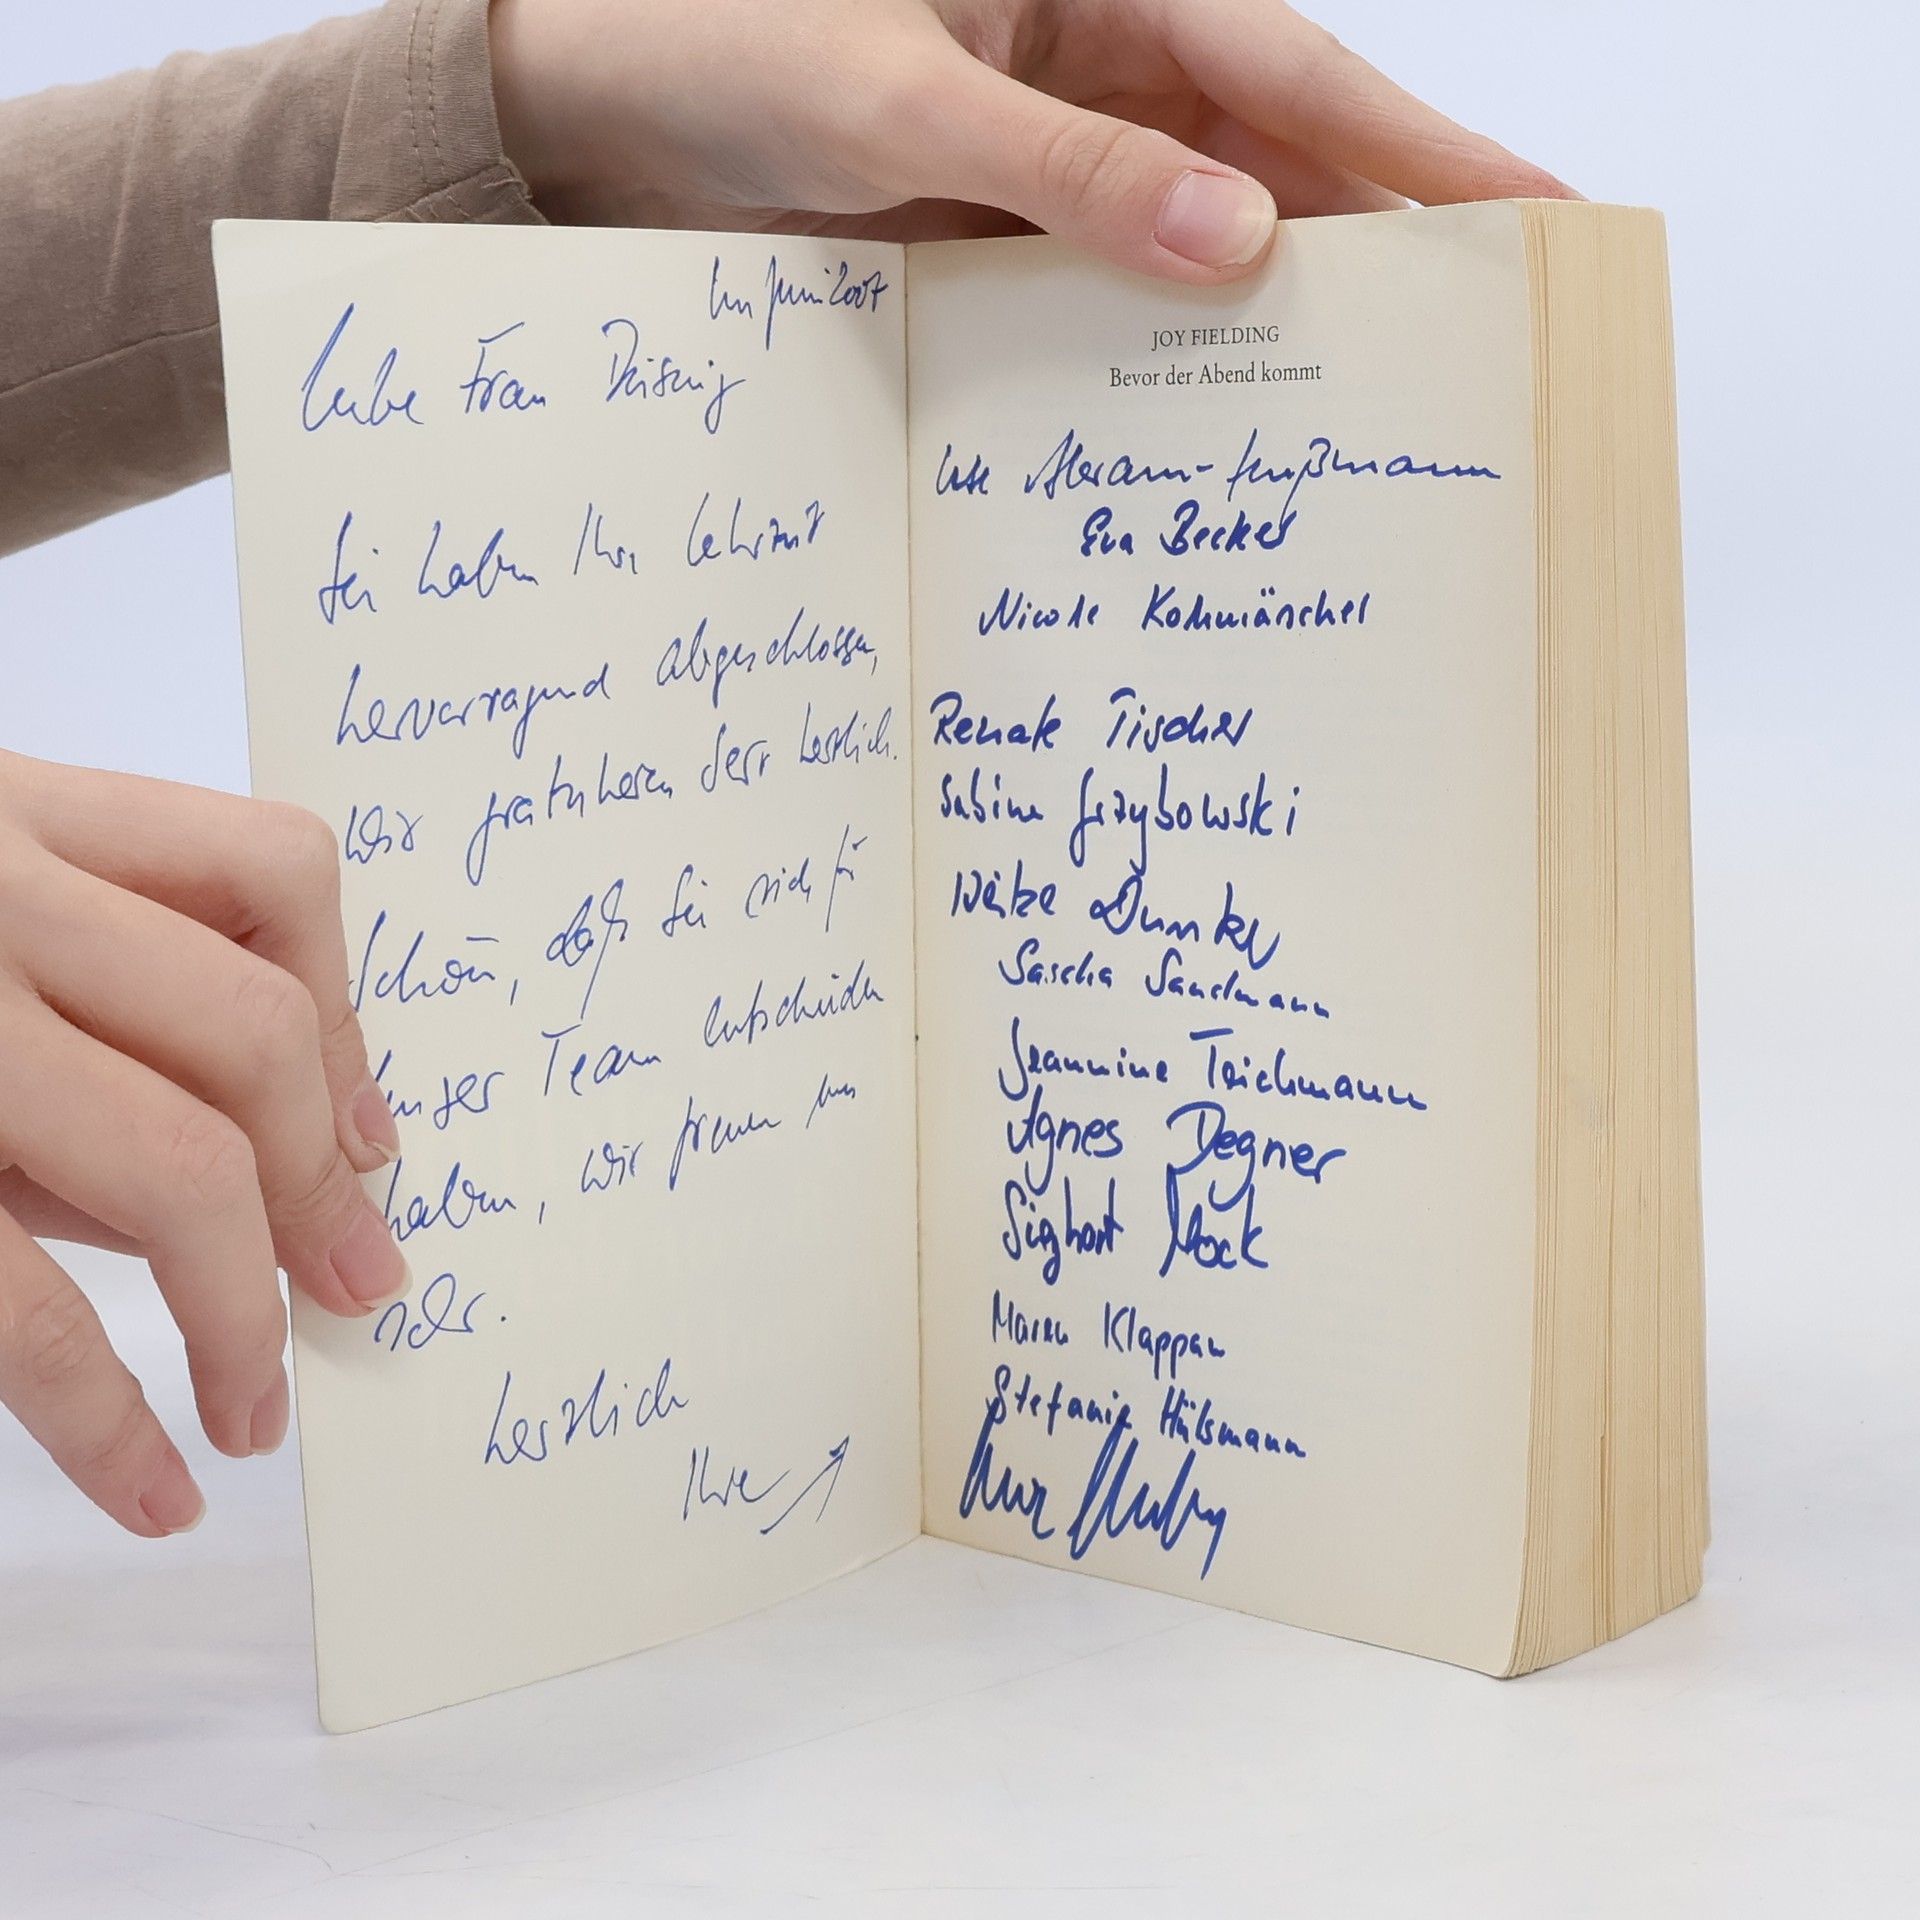 Im Juni 2007
Liebe Frau
Sie haben Ihre Lehrzeit
hervorragend abgeschlossen,
wir gratulieren sehr herzlich.
Schön, daß Sie sich für
unser Team entschieden
haben, wir freuen uns
sehr.
Herzlich
Ihre
JOY FIELDING
Bevor der Abend kommt
Eva Becker
Nicole
Renate Tischer
Sabine Grzybowski
Sascha Sandmann
Jeannine Teichmann
Agnes Degner
Sighart Mock
Maren
Stefanie Hülsmann